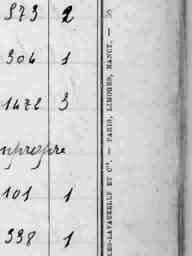 573 2
306 1
1472 3
101 1
338 1
LES-LAVAUZELLE ET Cie. — PARIS, LIMOGES, NANCY. —